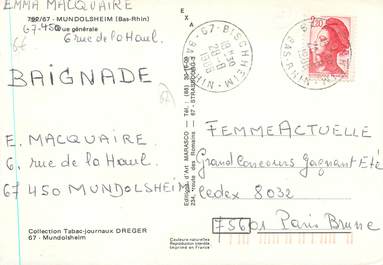 EMMA MACQUAIRE
792/67 - MUNDOLSHEIM (Bas-Rhin)
67.450 Vue générale
6 rue de la Haul.
BAIGNADE
E. MACQUAIRE
6. rue de la Haul.
67 450 MUNDOLSHEIM
Collection Tabac-journaux DREGER
67 - Mundolsheim
Editions d'Art MARASCO
234, route des Romains 67 - STRASBOURG-3
Couleurs naturelles
Reproduction interdite
Imprimé en France
67-BISCHHEIM
BAS-RHIN
2,20
FEMME ACTUELLE
Grand Concours Gagnant Eté
Cedex 8032
75601 Paris Brune